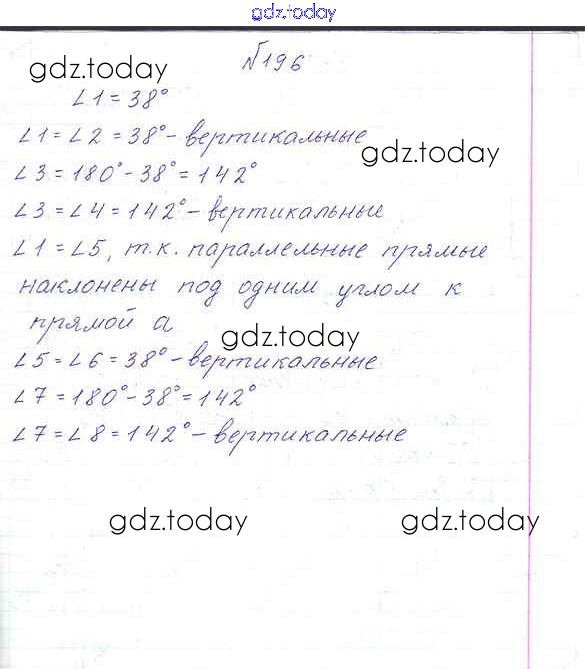 gdz.today
gdz.today
№196
∠1 = 38°
∠1 = ∠2 = 38° - вертикальные
gdz.today
∠3 = 180° - 38° = 142°
∠3 = ∠4 = 142° - вертикальные
∠1 = ∠5, т.к. параллельные прямые
наклонены под одним углом к
прямой a
gdz.today
∠5 = ∠6 = 38° - вертикальные
∠7 = 180° - 38° = 142°
∠7 = ∠8 = 142° - вертикальные
gdz.today
gdz.today